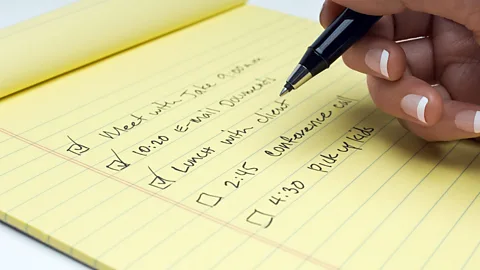 Meet with Jake 9:00am
10:20 E-mail Documents
Lunch with client
2:45 Conference call
4:30 Pick up kids